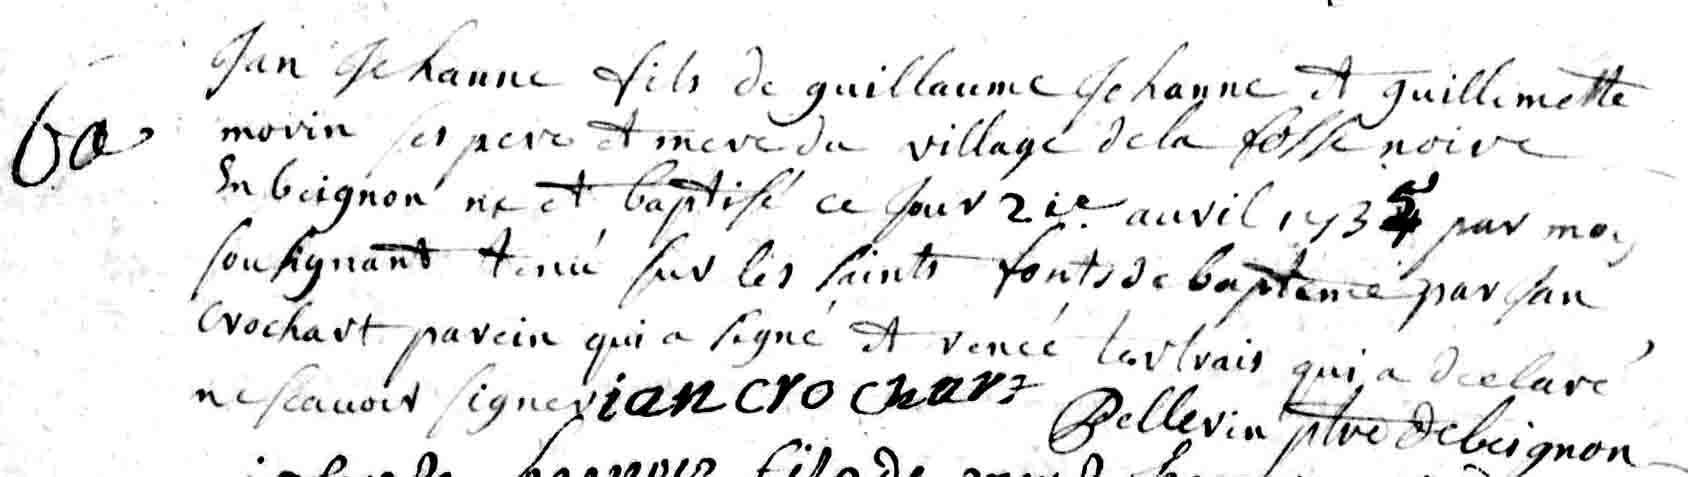 Jan Jehanne fils de guillaume Jehanne et guillemette
morin ses pere et mere du village de la fosse noire
60
En beignon né et baptisé ce jour 21e avril 1735 par moy
soussignant tenu sur les saints fonts de baptême par Jan
Crochart parein qui a signé et renée qui a declaré
ne scauoir signer ian crochart
Pellerin ptre de beignon
fils de